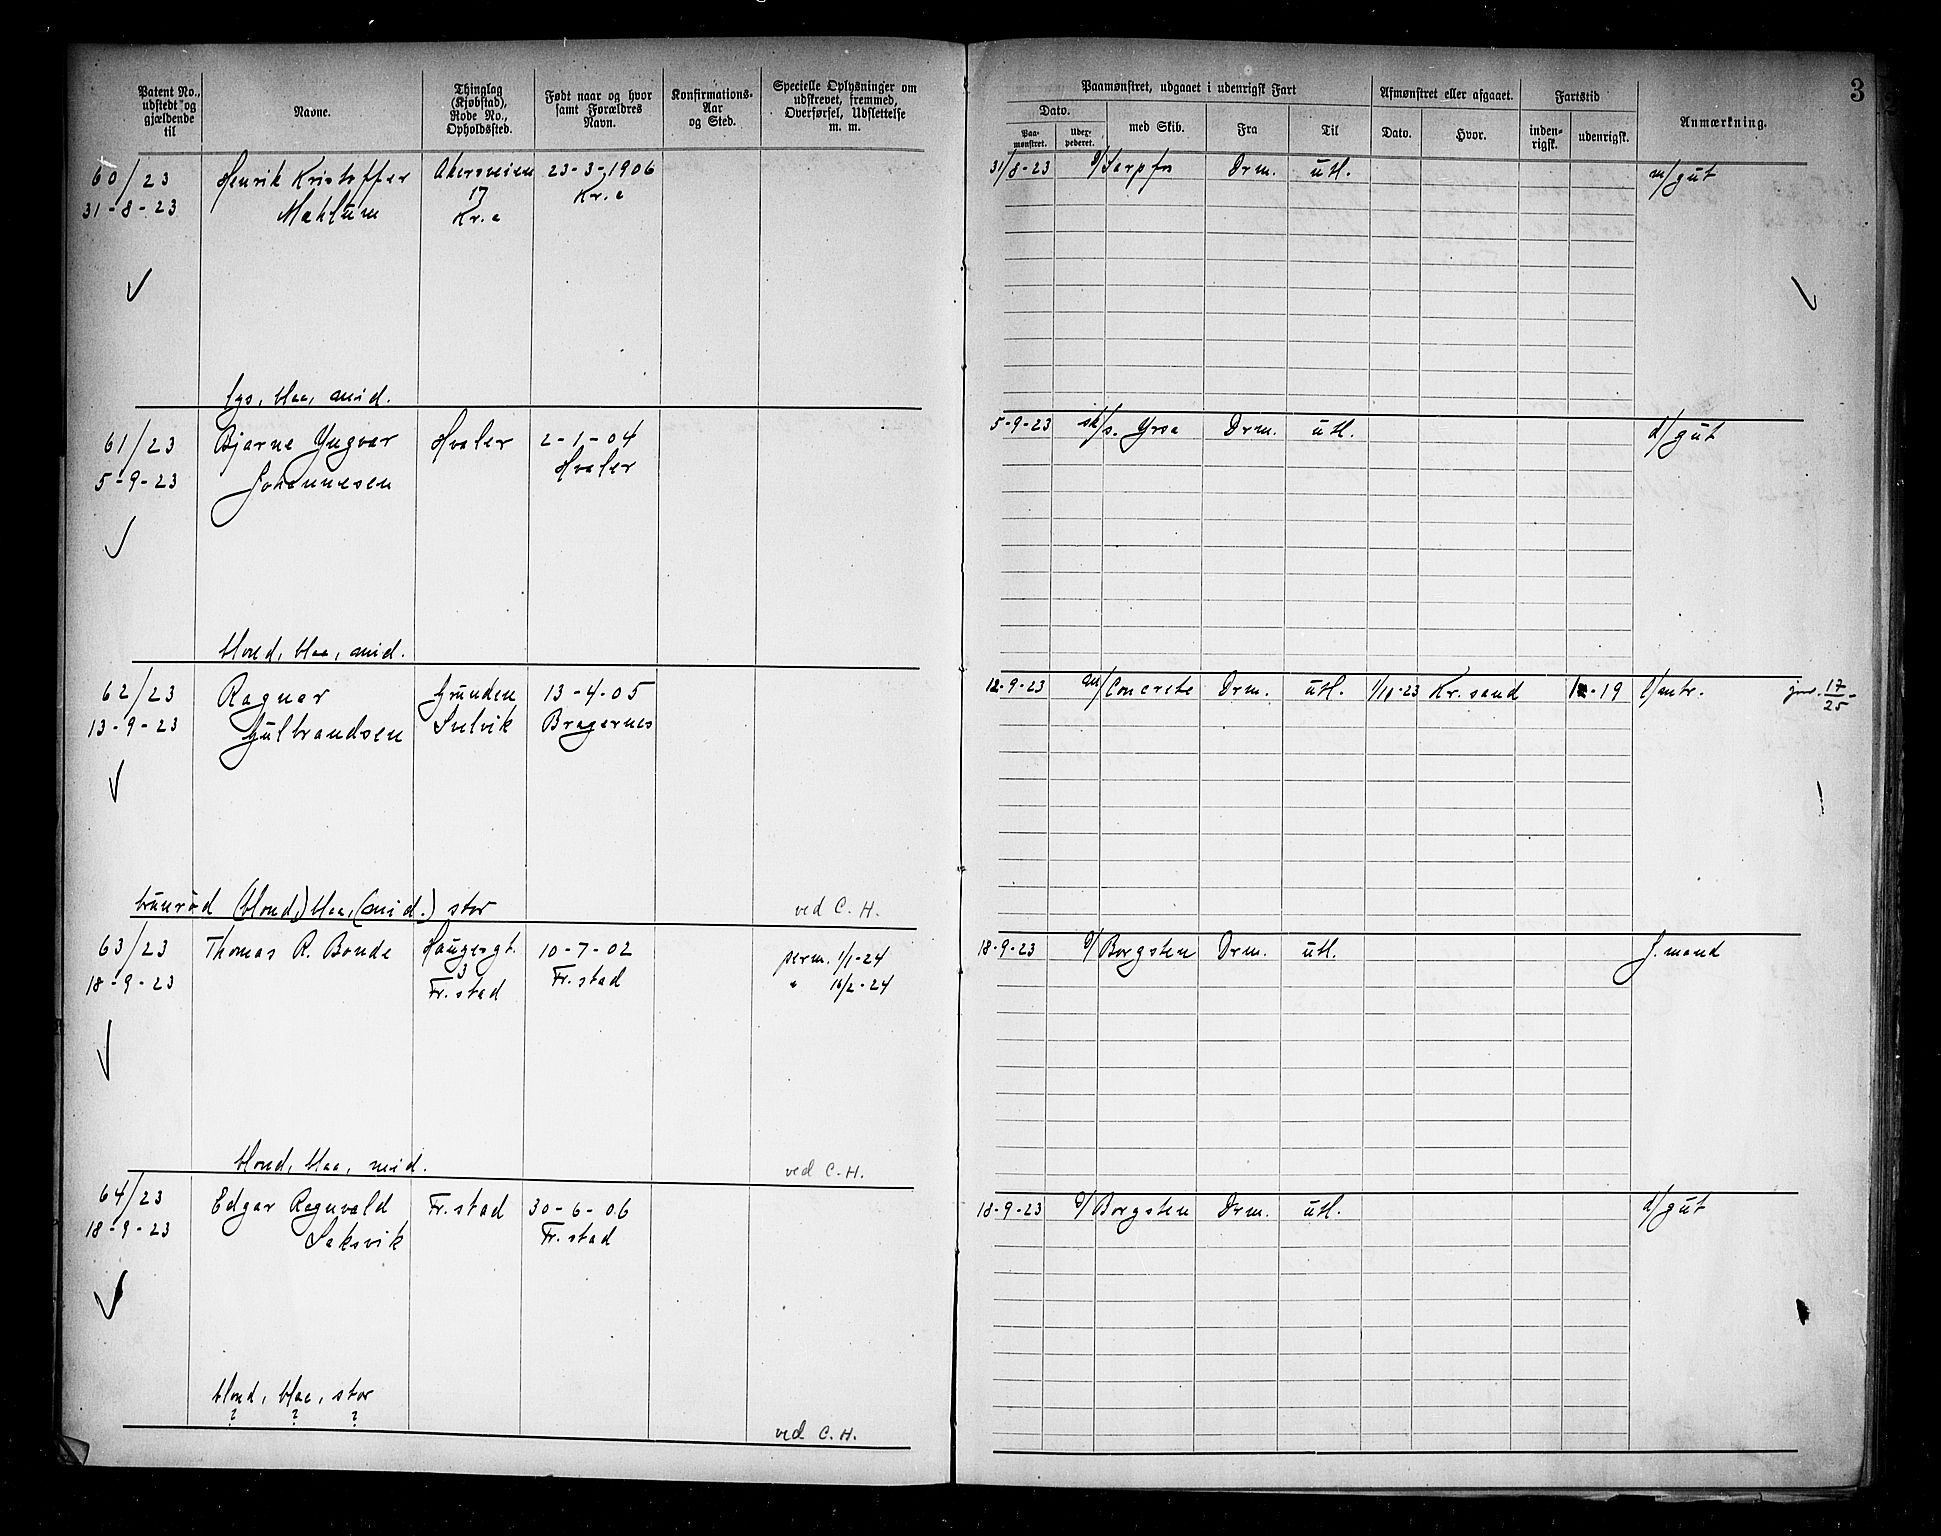 Patent No., udstedt og gjældende til
Navne.
Thinglag (Kjøbstad), Rode No., Opholdssted.
Født naar og hvor samt Forældres Navn.
Konfirmations-Aar og Sted.
Specielle Oplysninger om udskrevet, fremmed, Overførsel, Udslettelse m. m.
60/23
31-8-23
Henrik Kristoffer
Mæhlum
Akersveien
17
Kr.a
23-3-1906
Kr.a
lys, blaa, mid.
61/23
5-9-23
Bjarne Yngvar
Johannesen
Hvaler
2-1-04
Hvaler
blond, blaa, mid.
62/23
13-9-23
Ragnar
Gulbrandsen
Grunden
Svelvik
13-4-05
Bragernes
brunrød (blond,) blaa, (mid.) stor
ved C. H.
63/23
18-9-23
Thomas R. Bonde
Haugesgt.
3
Fr.stad
10-7-02
Fr.stad
perm. 1/1-24
" 16/2-24
blond, blaa, mid.
ved C. H.
64/23
18-9-23
Edgar Ragnvald
Laksvik
Fr.stad
30-6-06
Fr.stad
blond, blaa, stor
? ? ?
ved C. H.
3
Paamønstret, udgaaet i udenrigsk Fart
Afmønstret eller afgaaet.
Fartstid
Anmærkning.
Dato.
med Skib.
Fra
Til
Dato.
Hvor.
inden-rigsk.
udenrigsk.
Paa-mønstret.
31/8-23 Sarpfos Drm. utl. m/gut
5-9-23 sk/s. Yrsa Drm. utl. d/gut
12-9-23 m/Concrete Drm. utl. 1/10-23 Kr.sand -19 l/mtr. 17/25
18-9-23 Borgsten Drm. utl. J. mand
18-9-23 Borgsten Drm. utl. d/gut